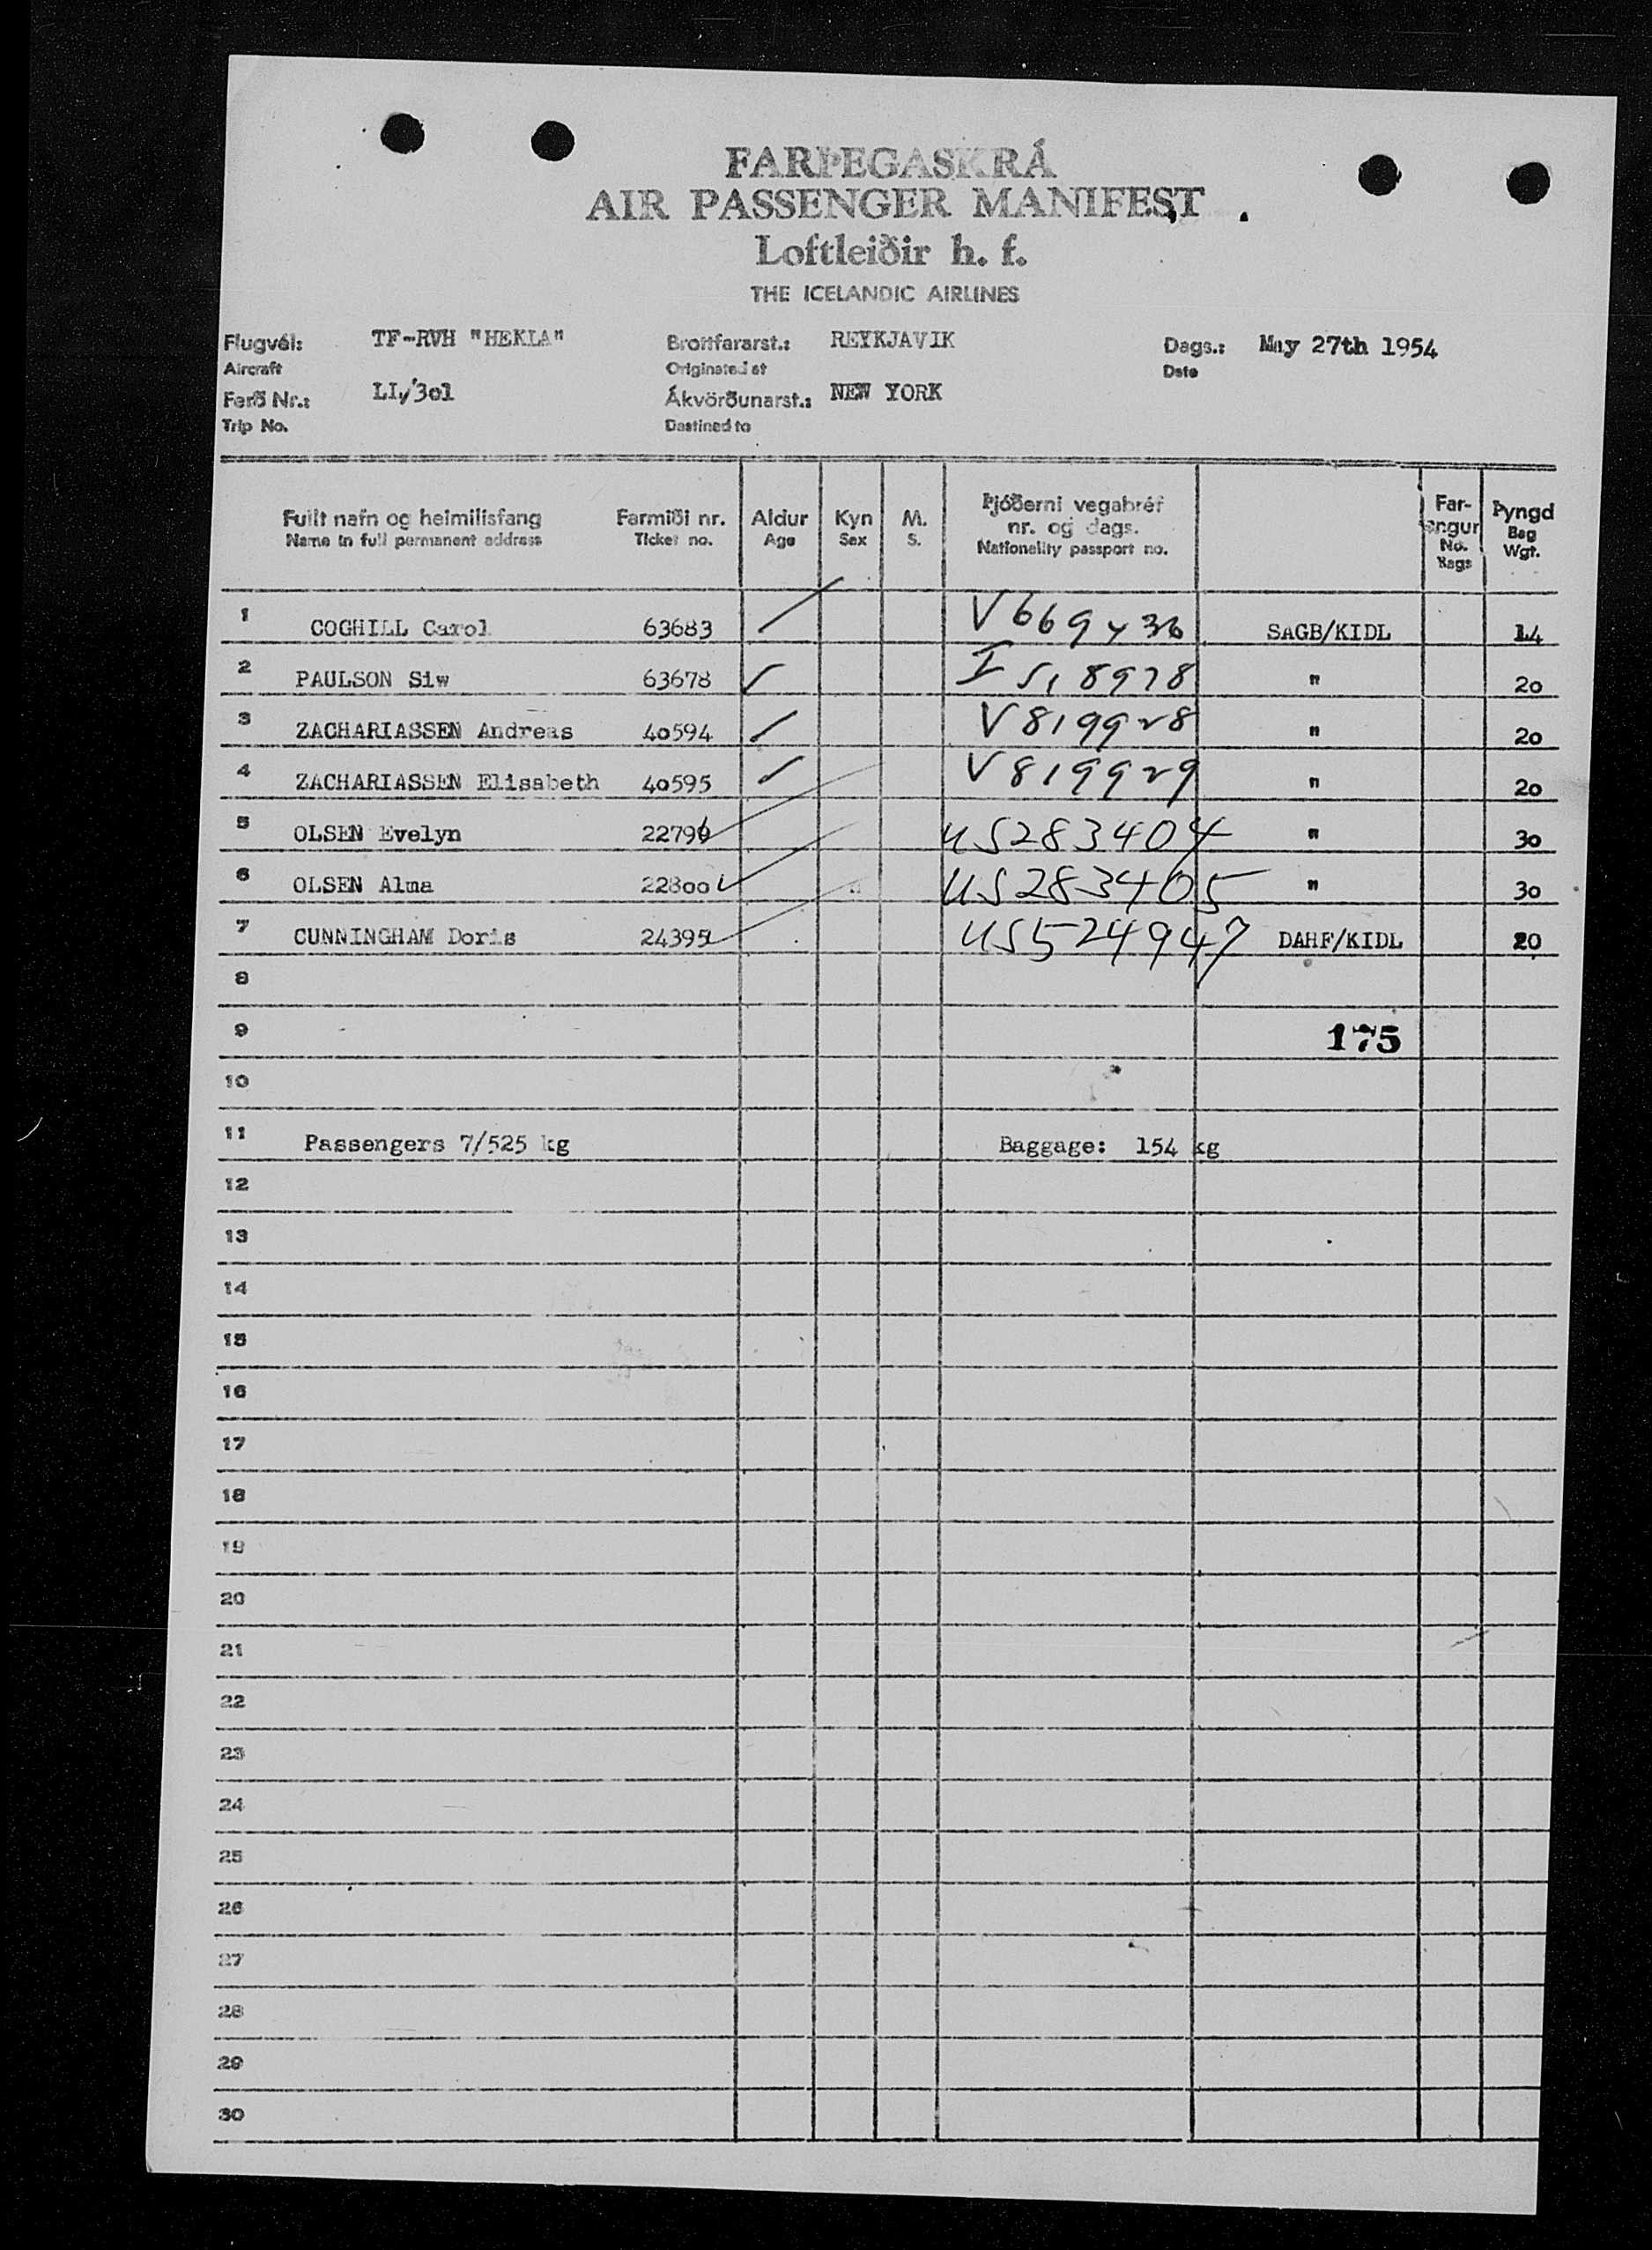 FARÞEGASKRÁ
AIR PASSENGER MANIFEST
Loftleiðir h. f.
THE ICELANDIC AIRLINES
Flugvél: TF-RVH "HEKLA" Brottfararst.: REYKJAVIK Dags.: May 27th 1954
Aircraft Originated at Date
Ferð Nr.: LL/301 Ákvörðunarst.: NEW YORK
Trip No. Destined to
Fullt nafn og heimilisfang Farmiði nr. Aldur Kyn M. Þjóðerni vegabréf nr. og dags. Far-angur Þyngd
Name in full permanent address Ticket no. Age Sex S. Nationality passport no. No. Bags Bag Wgt.
1 COGHILL Carol 63683 V669436 SAGB/KIDL 14
2 PAULSON Siw 63678 I 518978 " 20
3 ZACHARIASSEN Andreas 40594 V819928 " 20
4 ZACHARIASSEN Elisabeth 40595 V819929 " 20
5 OLSEN Evelyn US283404 " 30
6 OLSEN Alma 22800 US283405 " 30
7 CUNNINGHAM Doris 24395 US524947 DAHF/KIDL 20
8
9 175
10
11 Passengers 7/525 kg Baggage: 154 kg
12
13
14
15
16
17
18
19
20
21
22
23
24
25
26
27
28
29
30